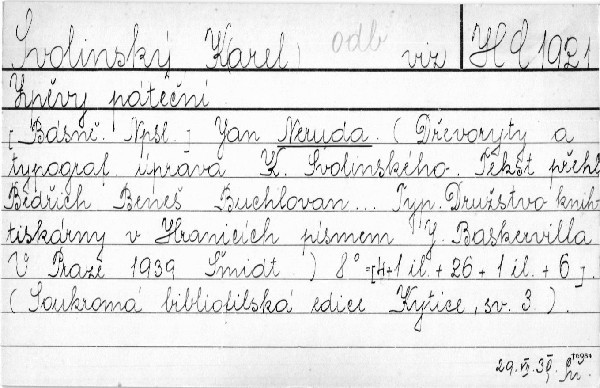 Svolinský Karel) odb viz H Q 1921
Zpěvy páteční
[Básně. Npsl.] Jan Neruda. (Dřevoryty a
typograf. úprava K. Svolinského. Tekst přehl.
Bedřich Beneš Buchlovan... Typ. Družstvo knih-
tiskárny v Hranicích písmem J. Baskervilla
V Praze 1939 Šmidt) 8° =[4+1 il. + 26 + 1 il. + 6].
(Soukromá bibliofilská edice Kytice, sv. 3.).
29.VI.39.